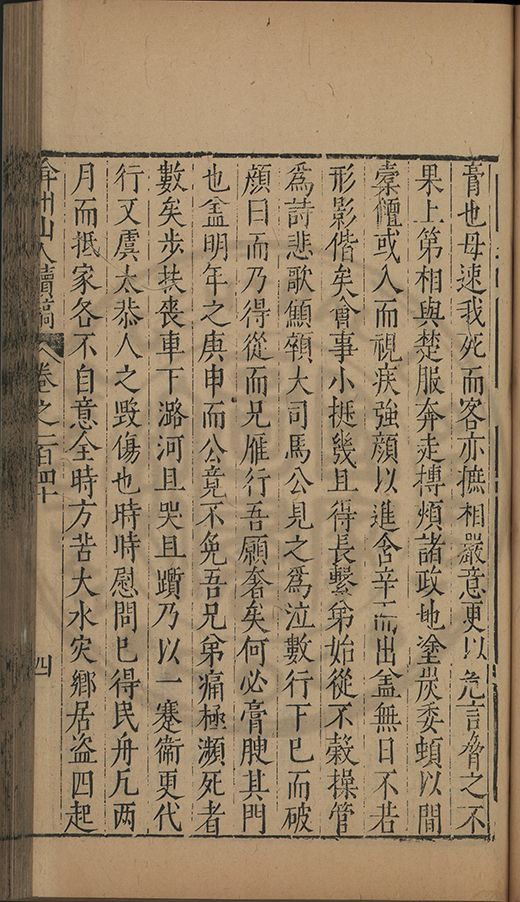 膏也母速我死而客亦撫相嚴意更以危言脅之不
果上第相與楚服奔走摶頰諸政地塗炭委頓以間
橐饘或入而視疾強顏以進含辛而出盖無日不若
形影偕矣會事小挺幾且得長繫弟始從不穀操管
為詩悲歌顦顇大司馬公見之為泣數行下已而破
顏曰而乃得從而兄雁行吾願奢矣何必膏腴其門
也盖明年之庚申而公竟不免吾兄弟痛極瀕死者
數矣步扶喪車下潞河且哭且躓乃以一蹇衛更代
行又虞太恭人之毀傷也時時慰問已得民舟凡两
月而抵家各不自意全時方苦大水灾鄉居盗四起
弇州山人續稿 卷之一百四十 四